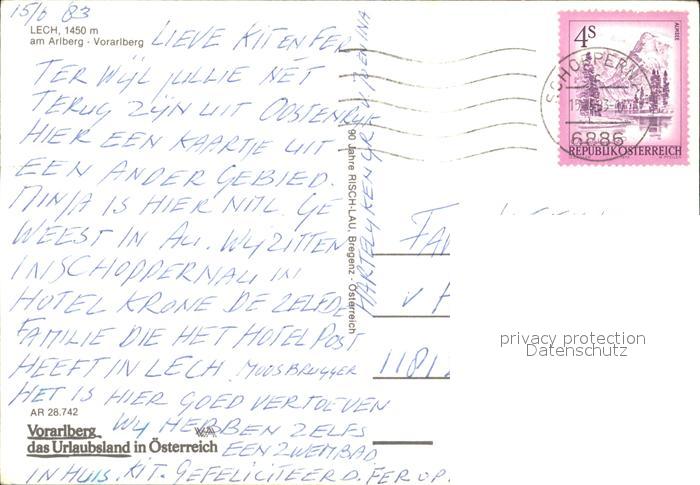 15/6 83
LECH, 1450 m
am Arlberg - Vorarlberg
LIEVE KIT EN FER
TERWIJL JULLIE NET
TERUG ZIJN UIT OOSTENRIJK
HIER EEN KAARTJE UIT
EEN ANDER GEBIED.
IS HIER NML. GE
WEEST IN AU. WIJ ZITTEN
IN SCHOPPERNAU IN
HOTEL KRONE DE ZELFDE
FAMILIE DIE HET HOTEL POST
HEEFT IN LECH. MOOSBRUGGER
HET IS HIER GOED VERTOEVEN
AR 28.742
WIJ HEBBEN ZELFS
Vorarlberg
das Urlaubsland in Österreich
EEN ZWEMBAD
IN HUIS. KIT. GEFELICITEERD. FER OP.
HARTELIJKE
90 Jahre RISCH-LAU, Bregenz - Österreich
4S
ALMSEE
REPUBLIK ÖSTERREICH
6886
FA
V H
1181
privacy protection
Datenschutz